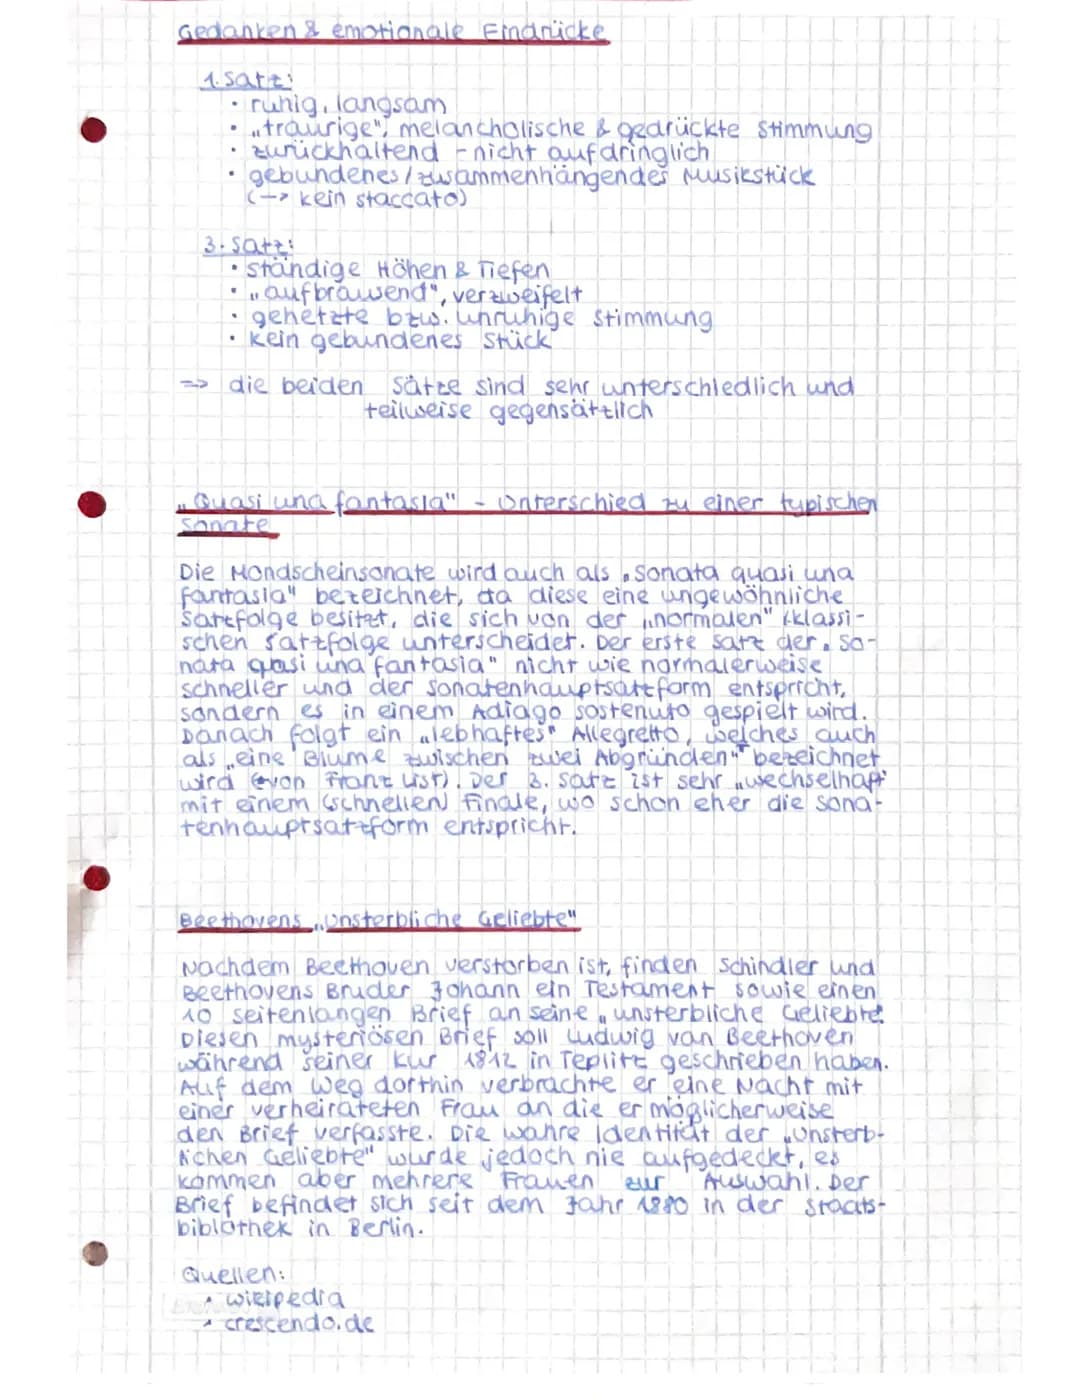 Gedanken & emotionale Eindrücke
1. Satz:
• ruhig, langsam
• „traurige", melancholische & gedrückte Stimmung
• zurückhaltend - nicht aufdringlich
• gebundenes/zusammenhängendes Musikstück
(-> kein staccato)
3. Satz:
• ständige Höhen & Tiefen
• „aufbrausend", verzweifelt
• gehetzte bzw. unruhige Stimmung
• kein gebundenes Stück
=> die beiden Sätze sind sehr unterschiedlich und
teilweise gegensätzlich
„Quasi una fantasia" - Unterschied zu einer typischen
Sonate
Die Mondscheinsonate wird auch als „Sonata quasi una
fantasia" bezeichnet, da diese eine ungewöhnliche
Satzfolge besitzt, die sich von der „normalen" (klassi-
schen Satzfolge unterscheidet. Der erste Satz der „So-
nata qasi una fantasia" nicht wie normalerweise
schneller und der Sonatenhauptsatzform entspricht,
sondern es in einem Adiago sostenuto gespielt wird.
Danach folgt ein „lebhaftes" Allegretto, welches auch
als „eine Blume zwischen zwei Abgründen" bezeichnet
wird (von Franz List). Der 3. Satz ist sehr „wechselhaft"
mit einem (schnellen) Finale, wo schon eher die Sona-
tenhauptsatzform entspricht.
Beethovens „Unsterbliche Geliebte"
Nachdem Beethoven verstorben ist, finden Schindler und
Beethovens Bruder Johann ein Testament sowie einen
10 seitenlangen Brief an seine „unsterbliche Geliebte".
Diesen mysteriösen Brief soll Ludwig van Beethoven
während seiner Kur 1812 in Teplitz geschrieben haben.
Auf dem Weg dorthin verbrachte er eine Nacht mit
einer verheirateten Frau an die er möglicherweise
den Brief verfasste. Die wahre Identität der „Unsterb-
lichen Geliebte" wurde jedoch nie aufgedeckt, es
kommen aber mehrere Frauen zur Auswahl. Der
Brief befindet sich seit dem Jahr 1880 in der Staats-
biblothek in Berlin.
Quellen:
• wikipedia
• crescendo.de